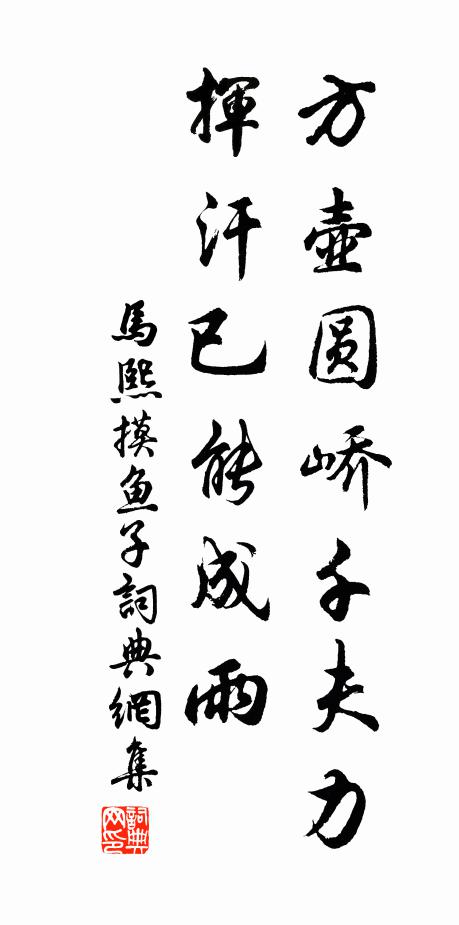 方壺圆峤千夫力
揮汗已能成雨
馬熙摸鱼子詞典網集
詞典网印